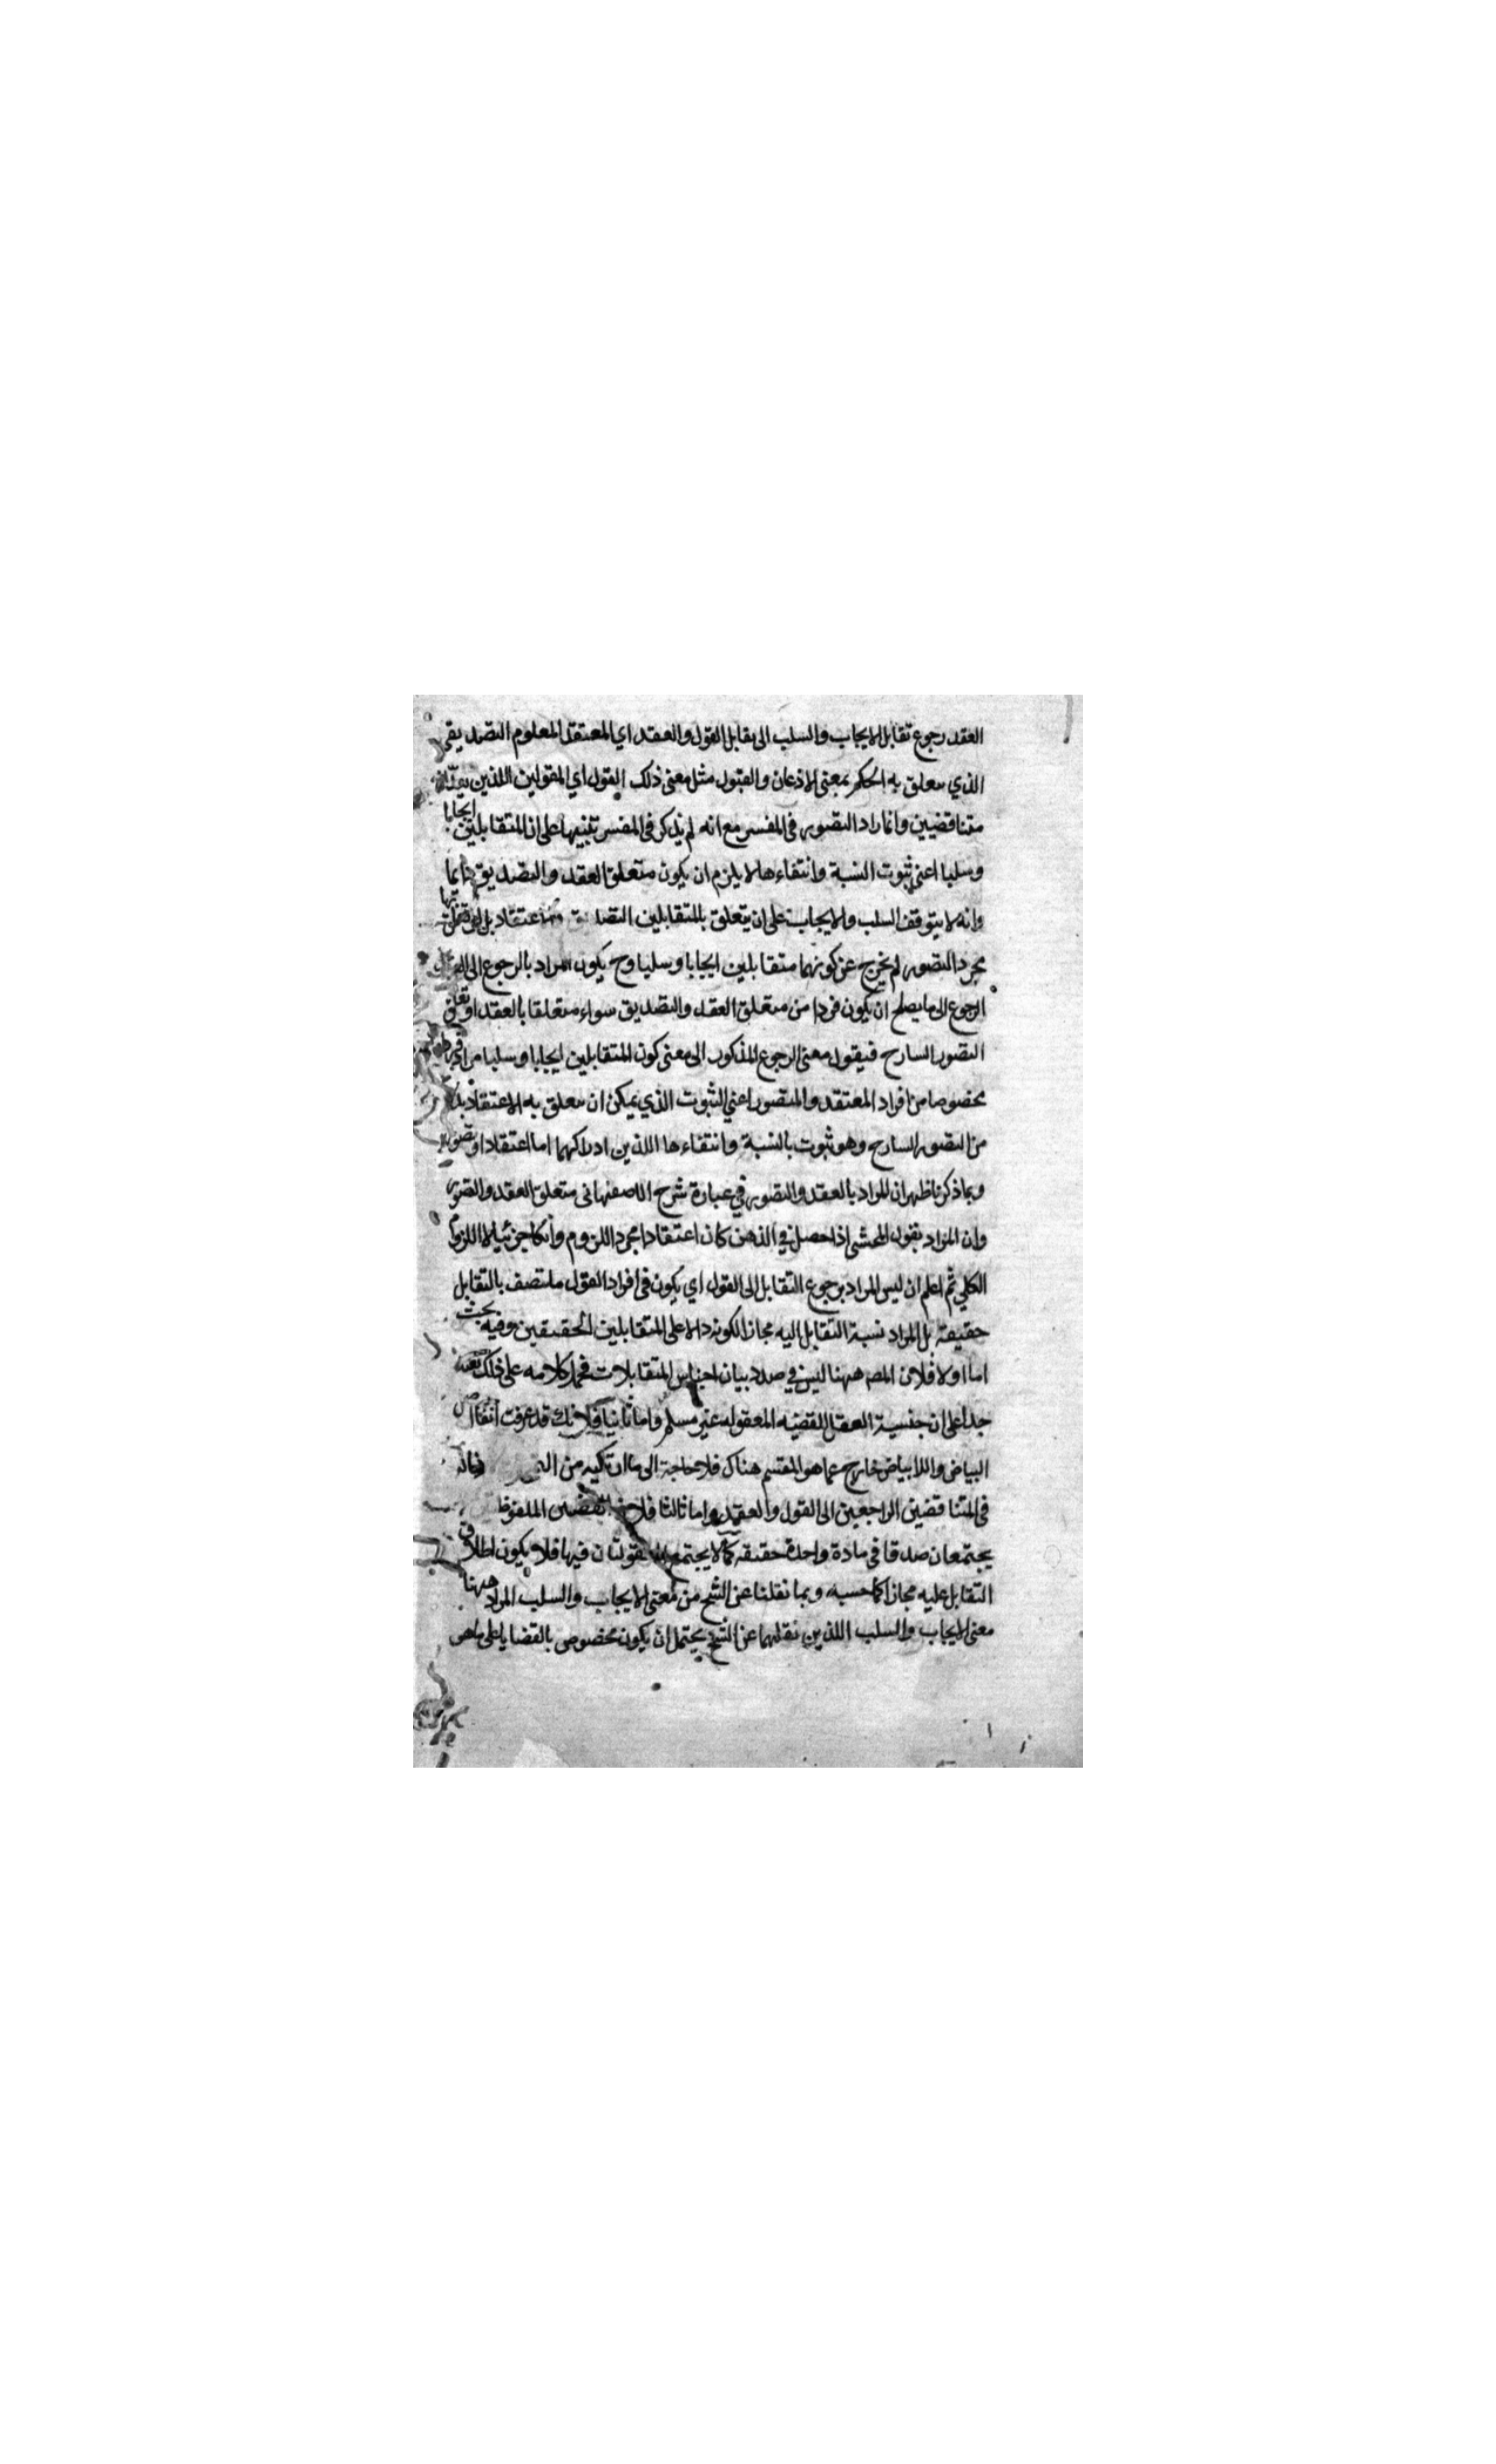 العقد رجوع تقابل الايجاب والسلب الى تقابل القول والعقد اي المعتقد المعلوم التصديقى
الذي يتعلق به الحكم بمعنى الاذعان والقبول مثل معنى ذلك القول اي المقولين اللذين
متناقضيين وانما راد التصور في المفسر مع انه لم يذكر في المفسر تنبيها على ان المتقابلين ايجابا
وسلبا اعنى ثبوت النسبة وانتفاءها لا يلزم ان يكون متعلق العقد والتصديق دائما
وانه لا يتوقف السلب والايجاب على ان يتعلق بالمتقابلين اعتقاد بل
مجرد التصور لم يخرج عن كونهما متقابلين ايجابا وسلبا وح يكون المراد بالرجوع الى
الرجوع الى ما يصلح ان يكون فردا من متعلق العقد والتصديق سواء متعلقا بالعقد او
التصور السارح فيقول معنى الرجوع المذكور الى معنى كون المتقابلين ايجابا وسلبا
مخصوصا من افراد المعتقد والمتصور اعني الثبوت الذي يمكن ان يتعلق به الاعتقاد
من التصور السارح وهو ثبوت بالنسبة وانتفاءها اللذين ادراكهما اما اعتقادا او تصور
وبما ذكرنا ظهر ان المراد بالعقد والتصور في عبارة شرح الاصفهانى متعلق العقد والتصور
وان المراد بقول المحشى اذا حصل في الذهن كان اعتقادا مجرد اللزوم وان كا جزئيا لا اللزوم
الكلي ثم اعلم ان ليس المراد برجوع التقابل الى القول اي يكون في افراد القول ما يتصف بالتقابل
حقيقة بل المراد نسبة التقابل اليه مجازا لكونه دالا على المتقابلين الحقيقين وفيه بحث
اما اولا فلان المصم ههنا ليس في صدد بيان اجناس المتقابلات فحمل كلامه على ذلك
جدا على ان جنسية العقل للقضية المعقوله غير مسلم واما ثانيا فلانك قد عرفت انفا ان
البياض واللابياض خارج عما هو المقسم هناك فلا حاجة الى ما ارتكبه من فانه
في المتناقضين الراجعين الى القول والعقد واما ثالثا فلان الملفوظ
يجتمعان صدقا في مادة واحدة حقيقة كما لا يجتمع المعقولتان فيها فلا يكون اطلاق
التقابل عليه مجازا كما حسبه وبما نقلنا عن الشيخ من معنى الايجاب والسلب المراد ههنا
معنى الايجاب والسلب اللذين نقلهما عن الشيخ يحتمل ان يكون مخصوص بالقضايا على ما هى